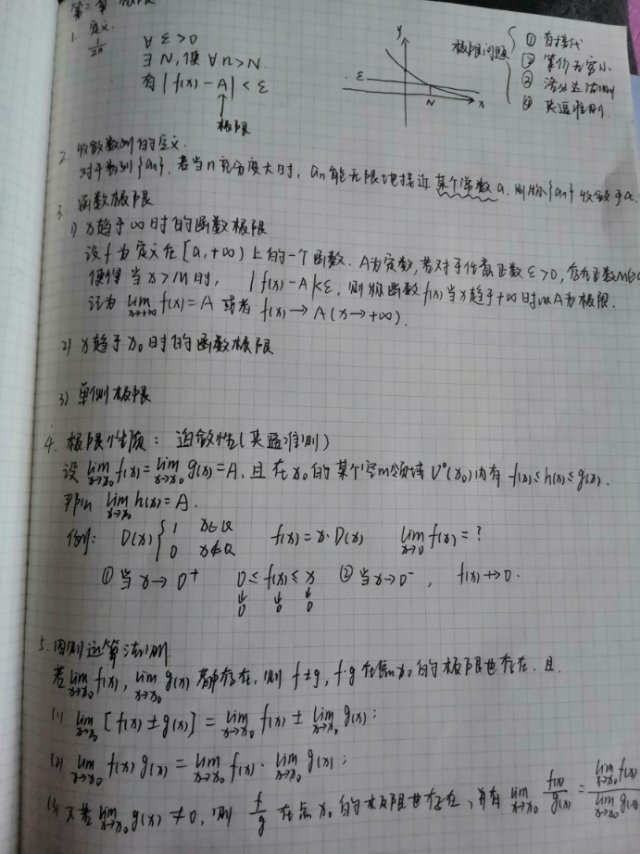 第二章 极限
1. 定义
1/2n
∀ ε>0
∃ N, 使 ∀n>N.
有 |f(x)-A|<ε
极限
y
ε
N
x
极限问题
① 直接代
② 等价无穷小
③ 洛必达法则
④ 夹逼准则
2. 收敛数列的定义
对于数列{an}, 若当n充分变大时, an能无限地接近某个常数a. 则称{an}收敛于a.
3. 函数极限
1) x趋于∞时的函数极限
设f为定义在[a,+∞)上的一个函数. A为定数, 若对于任意正数ε>0, 存在正数M
使得当x>M时, |f(x)-A|<ε, 则称函数f(x)当x趋于+∞时以A为极限.
记为 lim x→+∞ f(x)=A 或者 f(x)→A(x→+∞).
2) x趋于x0时的函数极限
3) 单侧极限
4. 极限性质: 迫敛性(夹逼准则)
设 lim x→x0 f(x)=lim x→x0 g(x)=A, 且在x0的某个空心领域U°(x0)内有 f(x)≤h(x)≤g(x).
那么 lim x→x0 h(x)=A.
例: D(x){1 x∈Q 0 x∉Q f(x)=x·D(x) lim x→0 f(x)=?
① 当x→0⁺ 0≤f(x)≤x ② 当x→0⁻, f(x)→0.
↓ ↓ ↓
0 0 0
5. 四则运算法则
若 lim x→x0 f(x), lim x→x0 g(x) 都存在, 则 f±g, f·g 在点x0的极限也存在, 且
(1) lim x→x0 [f(x)±g(x)] = lim x→x0 f(x) ± lim x→x0 g(x);
(2) lim x→x0 f(x)g(x) = lim x→x0 f(x) · lim x→x0 g(x);
(3) 又若 lim x→x0 g(x)≠0, 则 f/g 在点x0的极限也存在, 并有 lim x→x0 f(x)/g(x) = lim x→x0 f(x) / lim x→x0 g(x)